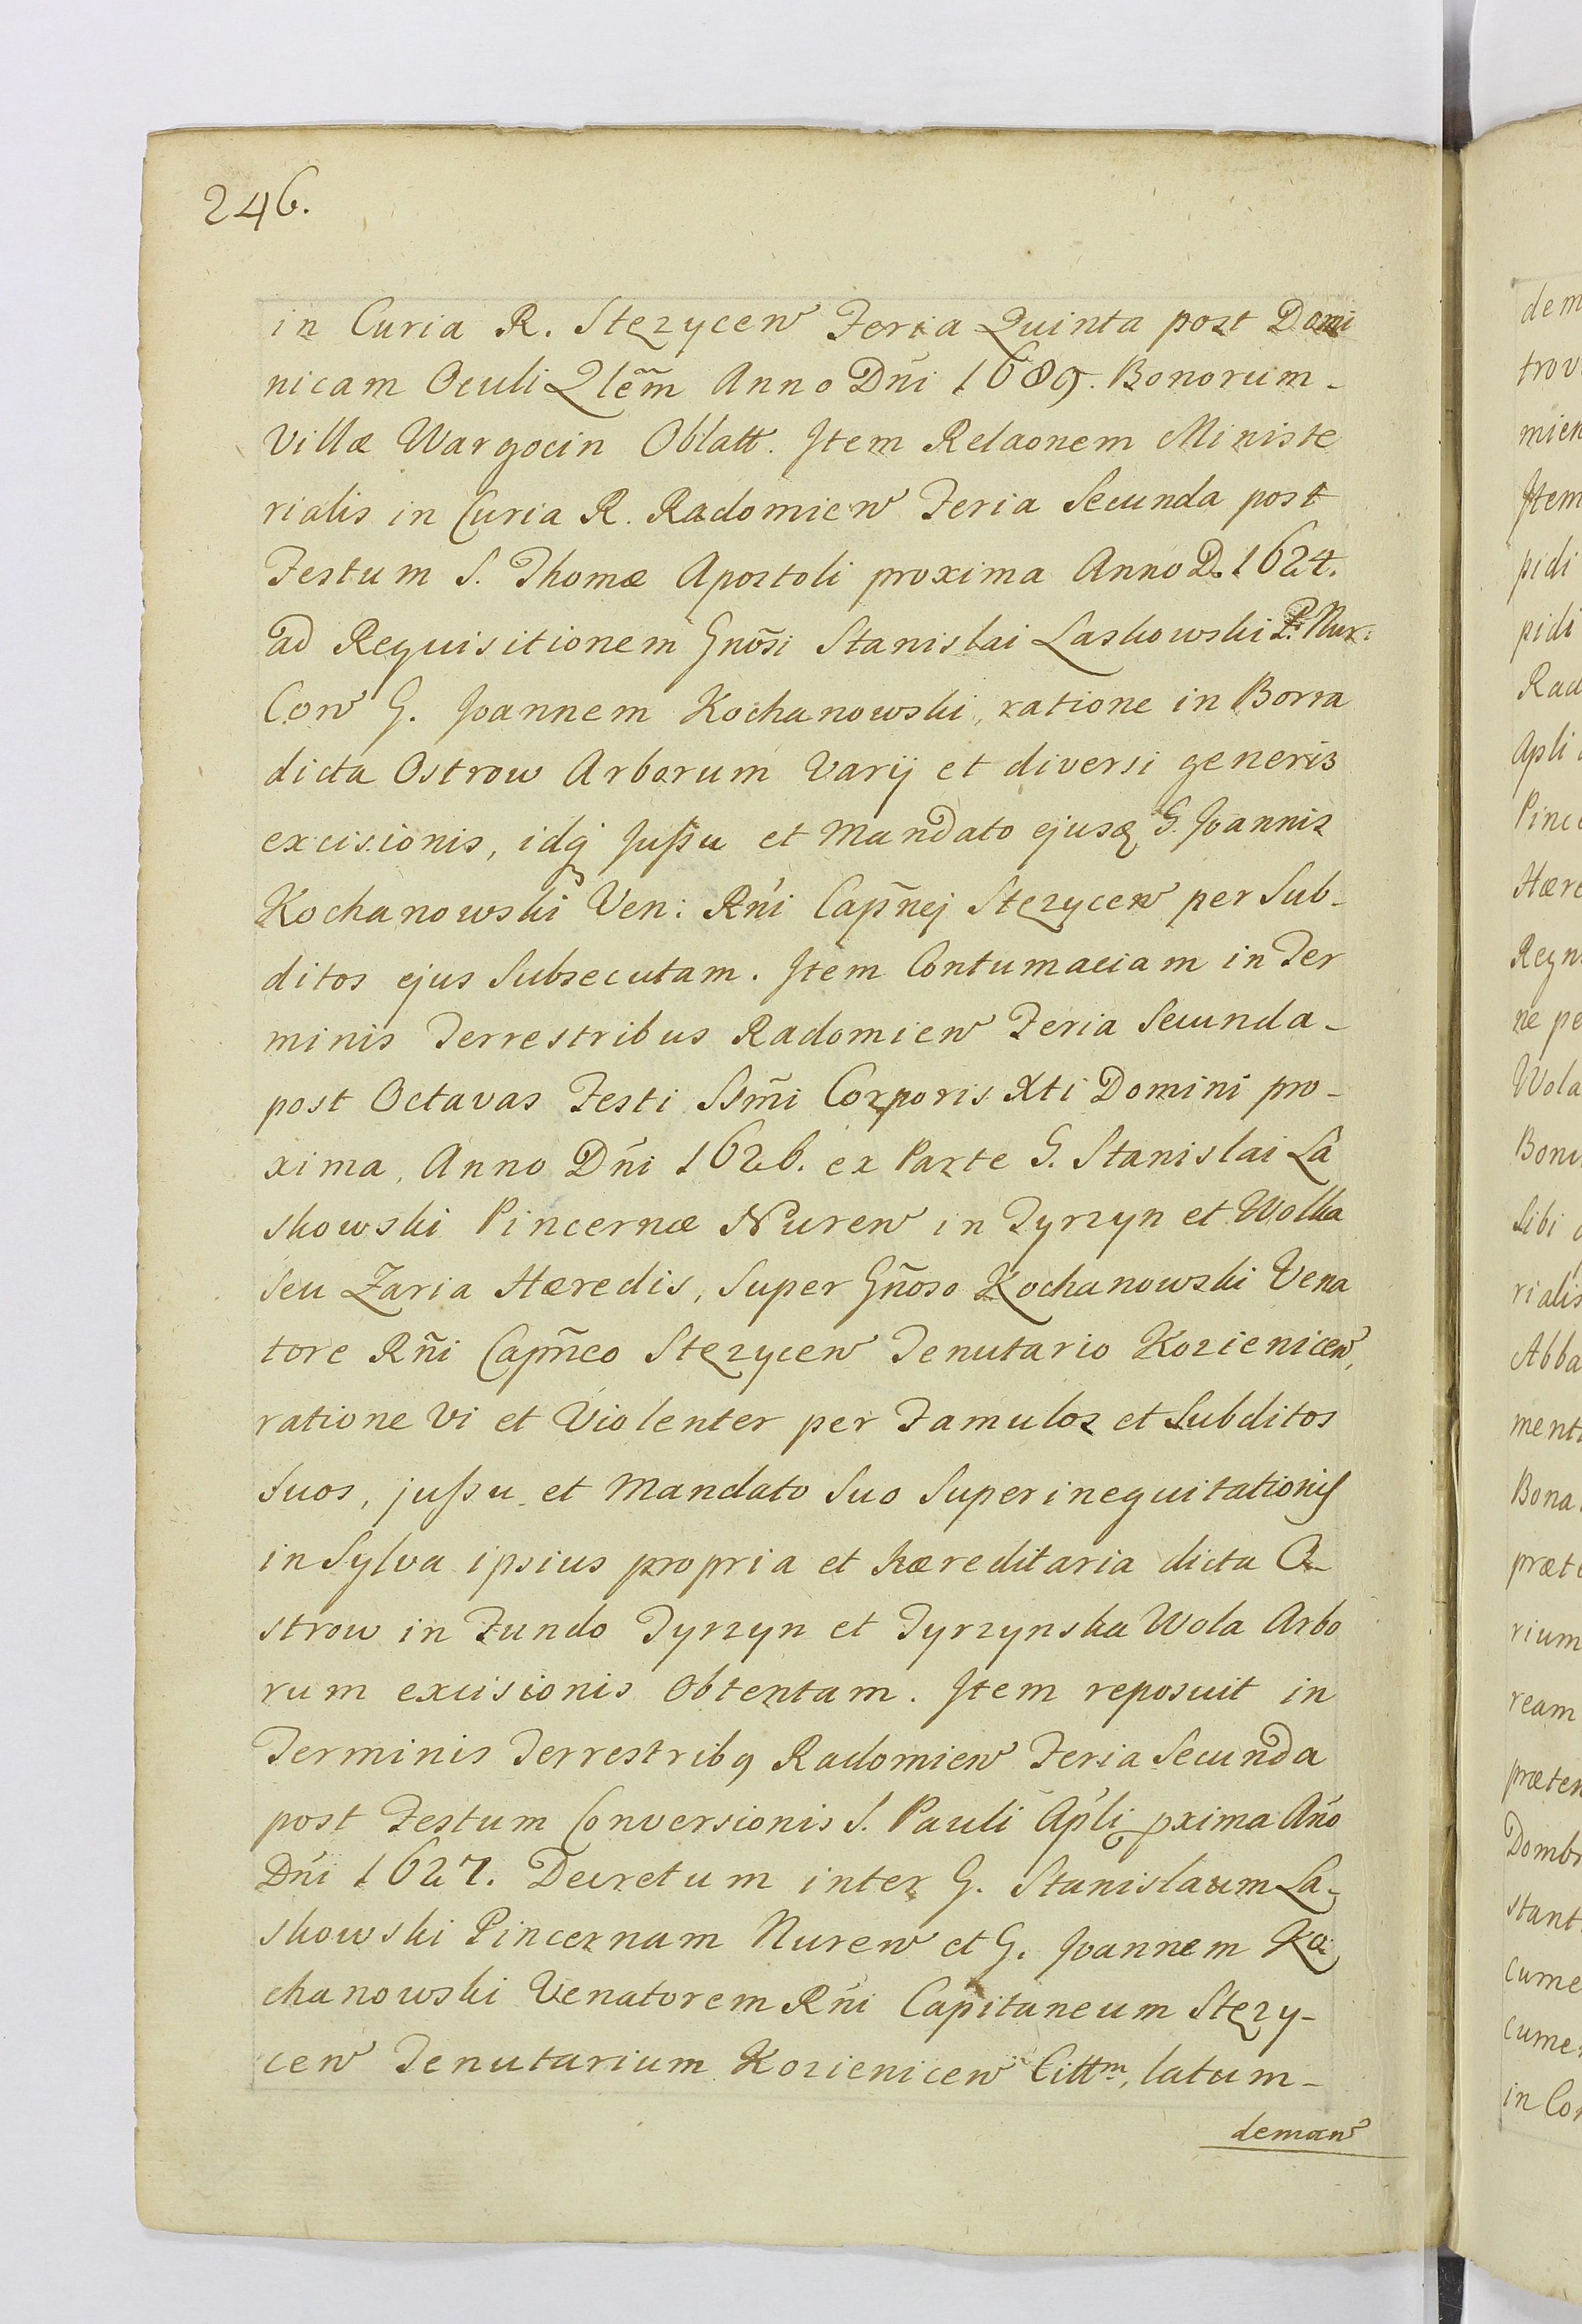 246.
in Curia R. Stęzycen Feria Quinta post Domi
nicam Oculi Qlem̃ Anno Dñi 1689. Bonorum-
Villæ Wargocin Oblatt. Item Relaonem Ministe
rialis in Curia R. Radomien Feria Secunda post
Festum S. Thomæ Apostoli proxima Anno D. 1624.
ad Requisitionem Gnõsi Stanislai Laskowski P. Nur:
Con G. Joannem Kochanowski, ratione in Borra
dicta Ostrow Arborum Varij et diversi generis
excisionis, idq Jussu et Mandato ejusq G. Joannis
Kochanowski Ven: Rñi Capñej Stęzycen per Sub-
ditos ejus Subsecutam. Item Contumaciam in Ter
minis Terrestribus Radomien Feria Secunda-
post Octavas Festi SSm̃i Corporis Xti Domini pro-
xima, Anno Dñi 1626. ex Parte G. Stanislai La
skowski Pincernæ Nuren in Tyrzyn et Wolka
seu Zaria Hæredis, Super Gñoso Kochanowski Vena
tore Rñi Capñeo Stęzycen Tenutario Kozienicen,
ratione Vi et Violenter per Famulos et Subditos
Suos, jussu et Mandato Suo Superinequitationis
in Sylva ipsius propria et hæreditaria dicta O-
strow in Fundo Tyrzyn et Tyrzynska Wola Arbo
rum excisionis obtentam. Item reposuit in
Terminis Terrestribq Radomien Feria Secunda
post Festum Conversionis S. Pauli Apli pxima Año
Dñi 1627. Decretum inter G. Stanislaum La-
skowski Pincernam Nuren et G. Joannem Ko-
chanowski Venatorem Rñi Capitaneum Stęzy-
cen Tenutarium Kozienicen Cittm, latum-
deman
dem
trov
mien
Item
pidi
pidi
Rad
Apli
Pinc
Hære
Regn
ne pe
Wola
Bon
Sibi
rialis
Abba
ment
Bona
præt
rium
ream
præten
Domb
stant
cume
cume
in Con